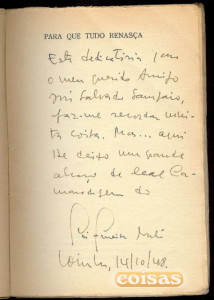 PARA QUE TUDO RENASÇA
Esta dedicatória para
o meu querido Amigo
José Salvado Sampaio,
faz-me recordar mui-
ta coisa. Mas... aqui
lhe deixo um grande
abraço de leal Ca-
maradagem do
Coimbra, 14/10/48.
coisas